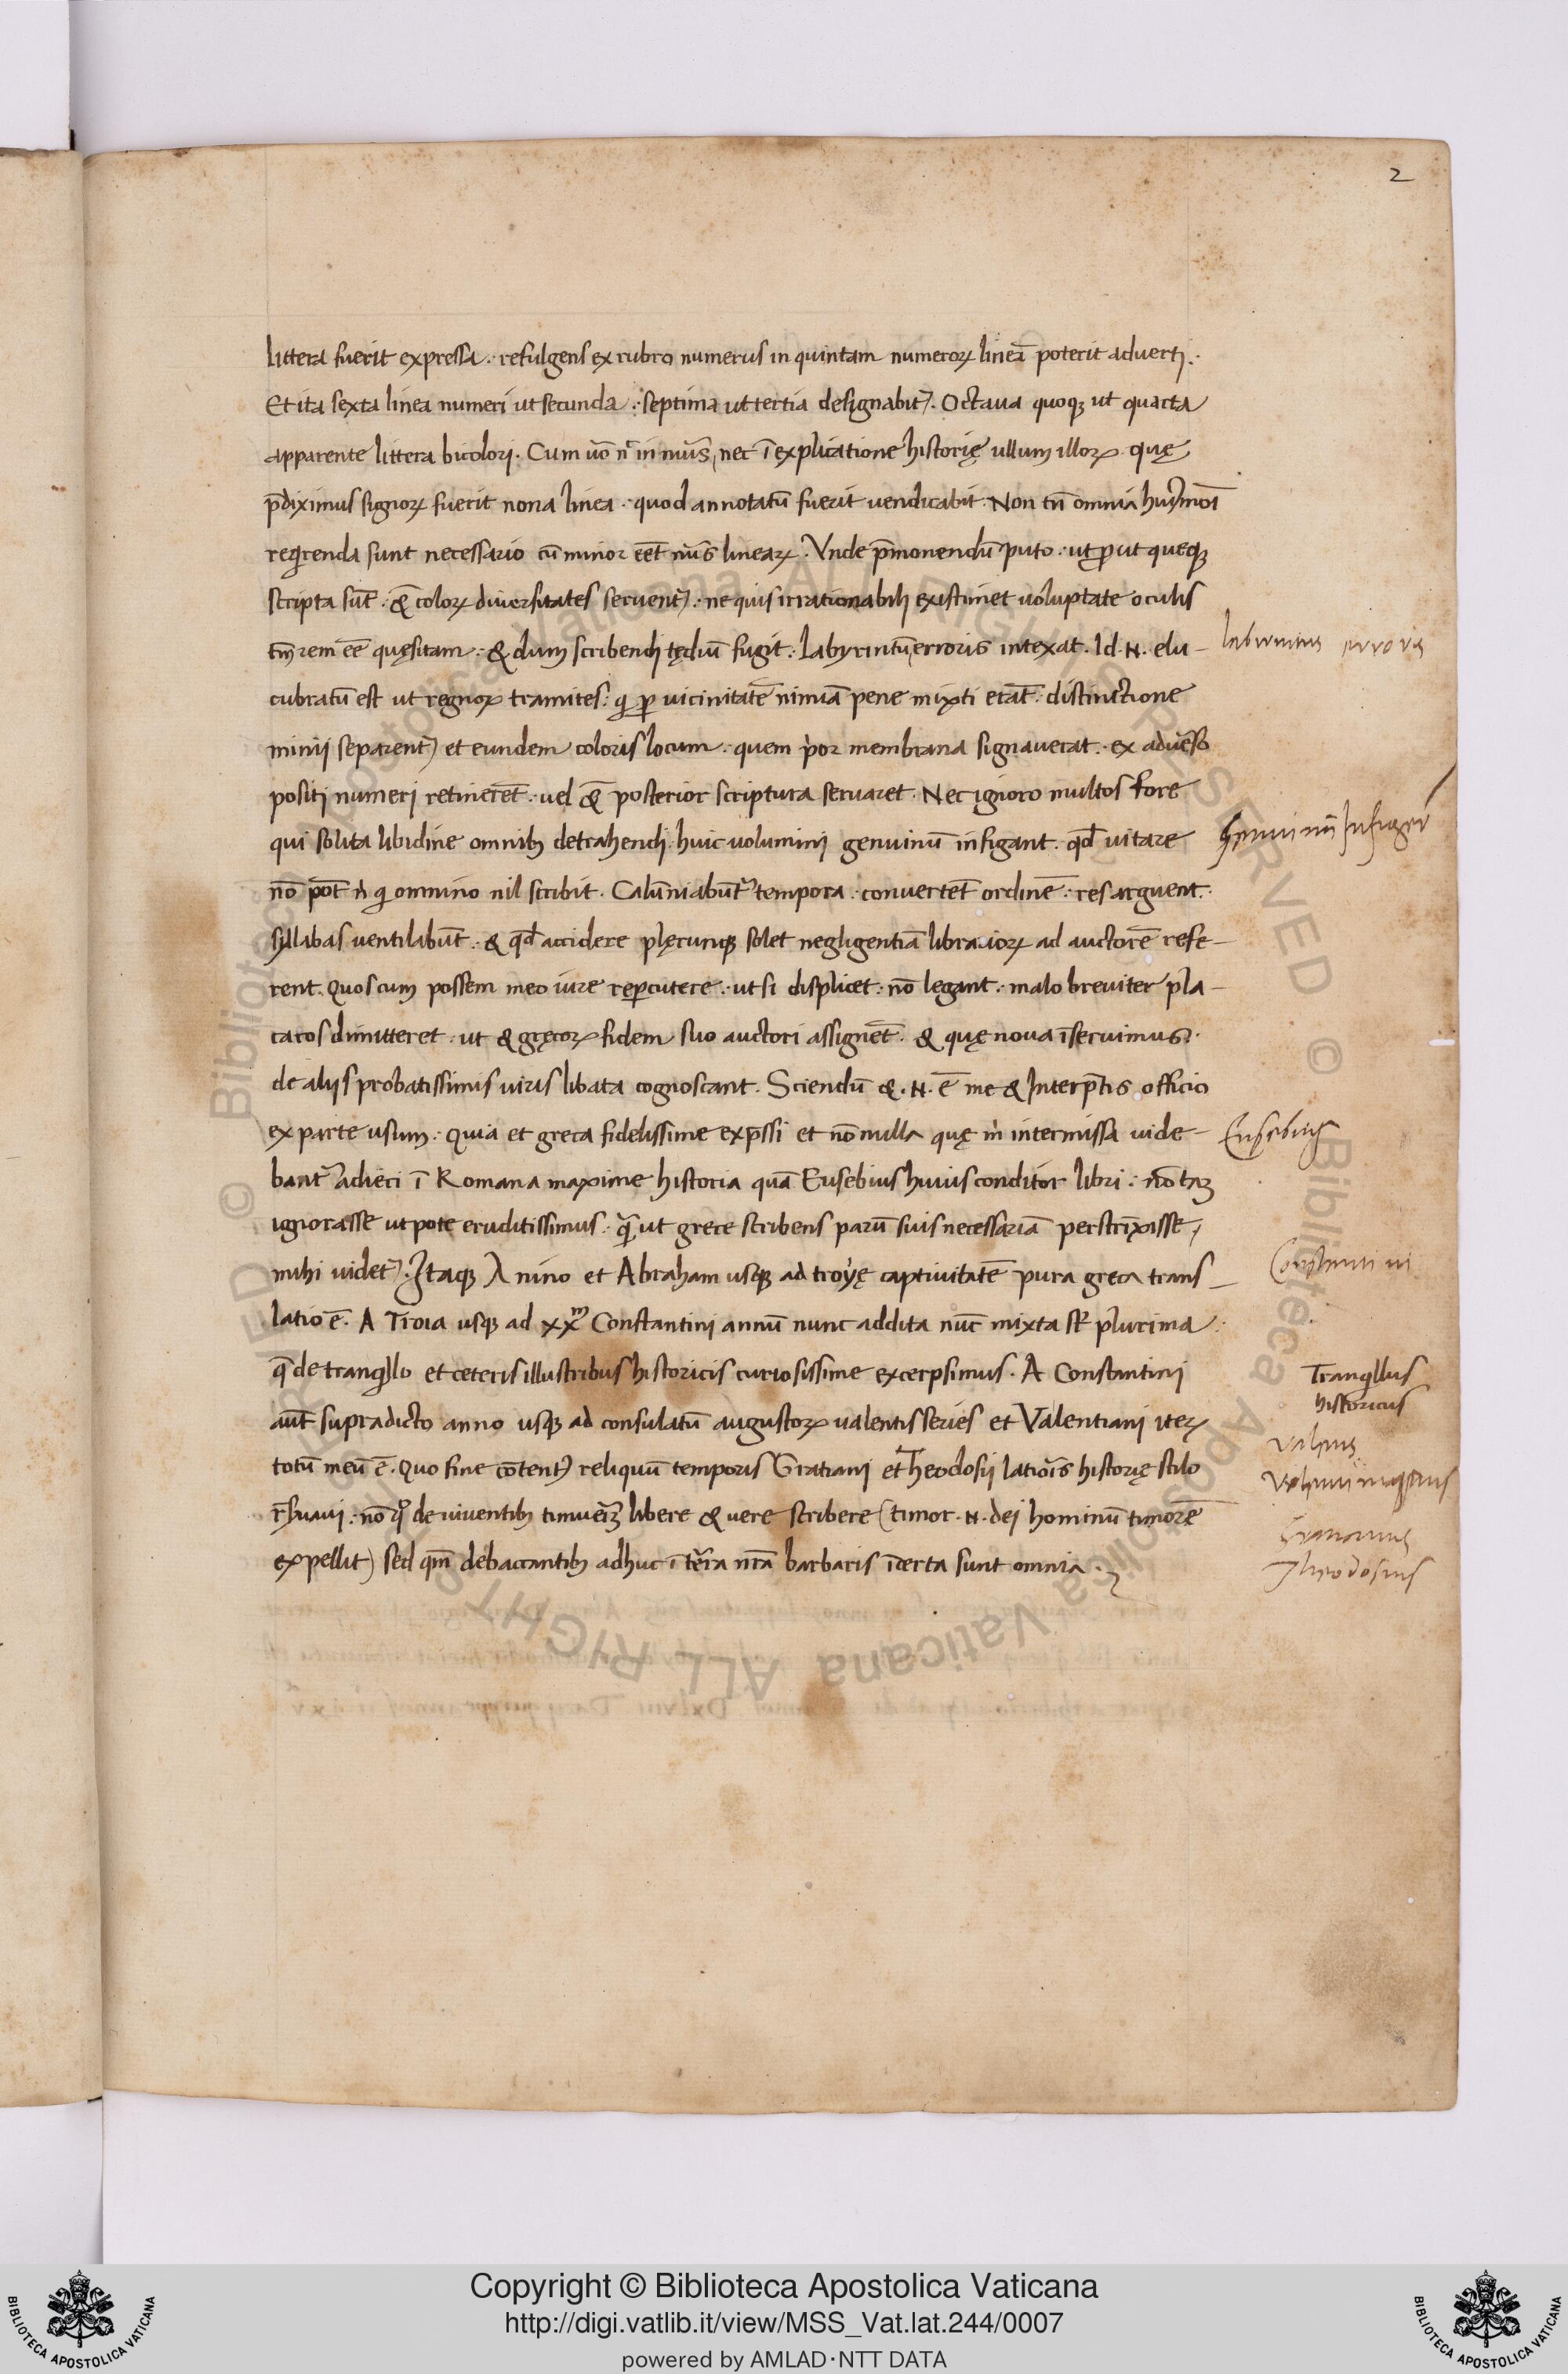 2
littera fuerit expressa. refulgens ex rubro numerus in quintam numeroꝝ lineā poterit adverti.
Et ita sexta linea numeri ut secunda. septima ut tertia designabit᷒. Octaua quoqꝫ ut quarta
apparente littera bicolori. Cum uō nͥ in nūs, nec ī explicatione historię ullum illoꝝ quę
p̄diximus signoꝝ fuerit nona linea. quod annotatū fuerit vendicabit. Non tn̄ omnia huiꝰmōi
reqͥrenda sunt necessario cū minor eēt nūs lineaꝝ. Vnde p̄monendū puto. ut ꝓut quęqꝫ
scripta sūt. & coloꝝ diversitates servent᷒. ne quis irrationabili existimet voluptate oculis
tm̄ rem eē quęsitam. & dum scribendi tędiū fugit. Labyrintū erroris intexat. Id .N. elu-
cubratū est ut regnoꝝ tramites: qͥ ꝑ vicinitatē nimiā pene mixti erāt. distinctione
minij separent᷒ et eundem coloris locum. quem pͥor membrana signaverat. ex adverso
positi numeri retinerēt. uel & posterior scriptura servaret. Nec ignoro multos fore
qui solita libidine omnibꝫ detrahendi huic volumini genuinū infigant. qd̄ vitare
nō pōt nͥ qͥ omnino nil scribit. Calūniabūt᷒ tempora. convertēt ordinē. res arguent.
syllabas ventilabūt. & qd̄ accidere plęrunqꝫ solet negligentiā librarioꝝ ad auctorē refe-
rent. Quos cum possem meo iure reꝑcutere. ut si displicet. nō legant. malo breviter pla-
catos dimitteret. ut & gręcoꝝ fidem suo auctori assignēt. & quę nova īseruimus.
de alijs probatissimis viris libata cognoscant. Sciendū &. N. ē me & Interp̄tis officio
ex parte usum. Quia et greca fidelissime exp̄ssi et nōnulla quę mͥ intermissa vide-
bant᷒ adieci ī Romana maxime historia quā Eusebius huius conditor libri. nō tā
ignorasse utpote eruditissimus. qͣ ut grece scribens parū suis necessariā perstrīxisse
mihi videt᷒. Itaqꝫ A nino et Abraham usqꝫ ad troyę captivitatē pura greca trans-
latio ē. A Troia usqꝫ ad xxᵐ Constantini annū nunc addita nūc mixta st̄ plurima.
q̄ de tranqͥllo et ceteris illustribus historicis curiosissime excerpsimus. A Constantini
aūt supradicto anno usqꝫ ad consulatū augustoꝝ valentis series et Valentiani iteꝝ
totū meū ē. Quo fine cōtent᷒ reliquū temporis Gratiani et Theodosij latioris historię stilo
r̄servavi. nō qͦ de viventibꝫ timuerī libere & vere scribere (timor .N. dei hominū timorē
expellit) sed qm̄ debaccantibꝫ adhuc ī tēra nr̄a barbaris īcerta sunt omnia.
labirintus erroris
Genuinū Infigere
Eusebius
Constantini
Tranqͥllus
historicus
Valens
Gratianus
Theodosius
Copyright © Biblioteca Apostolica Vaticana
http://digi.vatlib.it/view/MSS_Vat.lat.244/0007
powered by AMLAD·NTT DATA
BIBLIOTECA APOSTOLICA VATICANA
BIBLIOTECA APOSTOLICA VATICANA